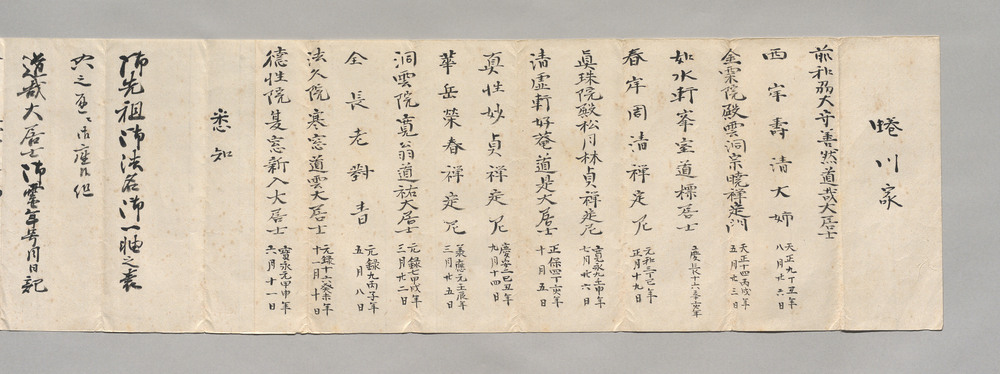 蜷川家
前和州大守善然道哉大居士
西牢壽清大姉 天正九丁丑年八月廿六日
金粟院殿雲洞宗暁禅定門 天正十四丙戌年五月廿三日
如水軒峯室道標居士 慶長十六辛亥年
春岸周清禅定尼 元和三丁巳年正月十九日
眞珠院殿松月林貞禅定尼 寛永九壬申年七月廿六日
清虚軒好菴道是大居士 正保四丁亥年十月五日
真性妙貞禅定尼 慶安二己丑年九月十四日
華岳榮春禅定尼 承應元壬辰年三月廿五日
洞雲院寛翁道祐大居士 元録七甲戌年三月廿二日
全長老對首 元録九丙子年五月八日
法久院寒窓道雲大居士 元録十六癸未年十一月十日
徳性院隻窓新入大居士 寶永元甲申年六月十一日
悉知
御先祖御法名御一軸之裏
御座候但
道哉大居士御霊年号月日記